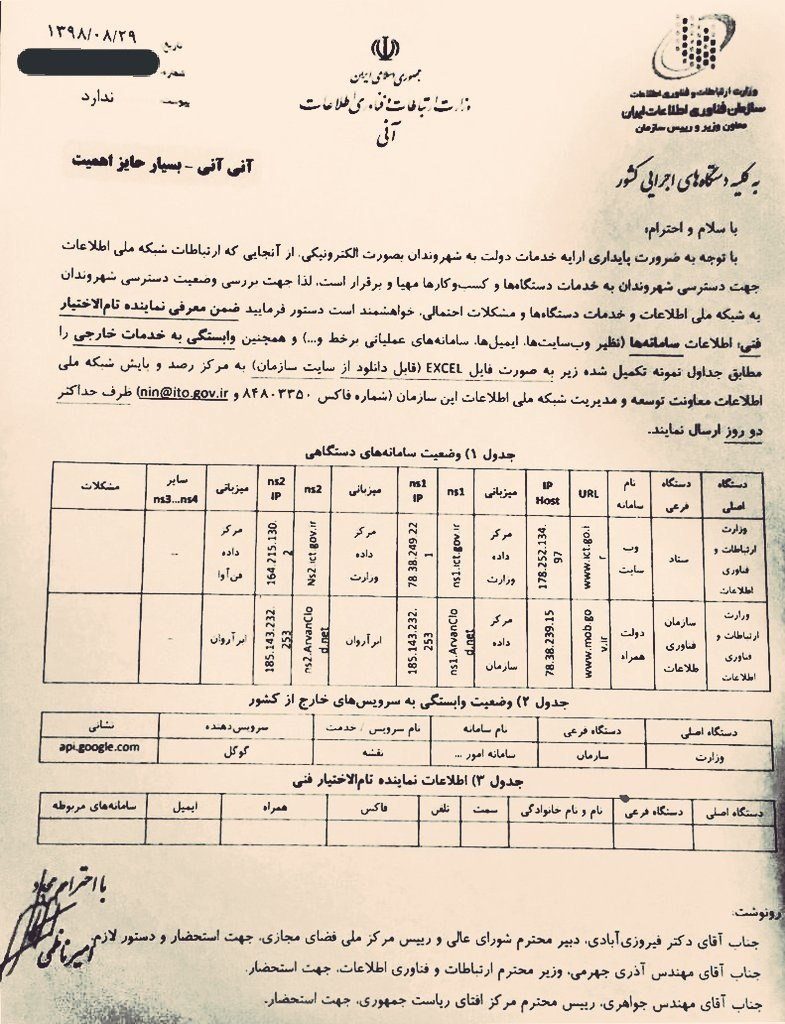 تاریخ ۱۳۹۸/۰۸/۲۹
شماره
پیوست ندارد
جمهوری اسلامی ایران
وزارت ارتباطات و فناوری اطلاعات
آنی
وزارت ارتباطات و فناوری اطلاعات
سازمان فناوری اطلاعات ایران
معاون وزیر و رییس سازمان
آنی آنی - بسیار حایز اهمیت
به کلیه دستگاه‌های اجرایی کشور
با سلام و احترام؛
با توجه به ضرورت پایداری ارایه خدمات دولت به شهروندان بصورت الکترونیکی، از آنجایی که ارتباطات شبکه ملی اطلاعات
جهت دسترسی شهروندان به خدمات دستگاه‌ها و کسب‌وکارها مهیا و برقرار است، لذا جهت بررسی وضعیت دسترسی شهروندان
به شبکه ملی اطلاعات و خدمات دستگاه‌ها و مشکلات احتمالی، خواهشمند است دستور فرمایید ضمن معرفی نماینده تام‌الاختیار
فنی، اطلاعات سامانه‌ها (نظیر وب‌سایت‌ها، ایمیل‌ها، سامانه‌های عملیاتی برخط و...) و همچنین وابستگی به خدمات خارجی را
مطابق جداول نمونه تکمیل شده زیر به صورت فایل EXCEL (قابل دانلود از سایت سازمان) به مرکز رصد و پایش شبکه ملی
اطلاعات معاونت توسعه و مدیریت شبکه ملی اطلاعات این سازمان (شماره فاکس ۸۴۸۰۳۳۵۰ و nin@ito.gov.ir) ظرف حداکثر
دو روز ارسال نمایند.
جدول ۱) وضعیت سامانه‌های دستگاهی
دستگاه اصلی | دستگاه فرعی | نام سامانه | URL | IP Host | میزبانی | ns1 | ns1 IP | میزبانی | ns2 | ns2 IP | میزبانی | سایر ns3...ns4 | مشکلات
وزارت ارتباطات و فناوری اطلاعات | ستاد | وب سایت | www.ict.go.i r | 178.252.134. 97 | مرکز داده وزارت | ns1.ict.gov.ir | 78.38.249.22 1 | مرکز داده وزارت | Ns2.ict.gov.ir | 164.215.130. 2 | مرکز داده فن‌آوا | ...
وزارت ارتباطات و فناوری اطلاعات | سازمان فناوری طلاعات | دولت همراه | www.mob.go v.ir | 78.38.239.15 | مرکز داده سازمان | ns1.ArvanClo d.net | 185.143.232. 253 | ابرآروان | ns2.ArvanClo d.net | 185.143.232 253 | ابرآروان | ...
جدول ۲) وضعیت وابستگی به سرویس‌های خارج از کشور
دستگاه اصلی | دستگاه فرعی | نام سامانه | نام سرویس / خدمت | سرویس‌دهنده | نشانی
وزارت | سازمان | سامانه امور ... | نقشه | گوگل | api.google.com
جدول ۳) اطلاعات نماینده تام‌الاختیار فنی
دستگاه اصلی | دستگاه فرعی | نام و نام خانوادگی | سمت | تلفن | فاکس | همراه | ایمیل | سامانه‌های مربوطه
با احترام مجدد
امیر ناظمی
رونوشت:
جناب آقای دکتر فیروزی‌آبادی، دبیر محترم شورای عالی و رییس مرکز ملی فضای مجازی، جهت استحضار و دستور لازم.
جناب آقای مهندس آذری جهرمی، وزیر محترم ارتباطات و فناوری اطلاعات، جهت استحضار.
جناب آقای مهندس جواهری، رییس محترم مرکز افتای ریاست جمهوری، جهت استحضار.